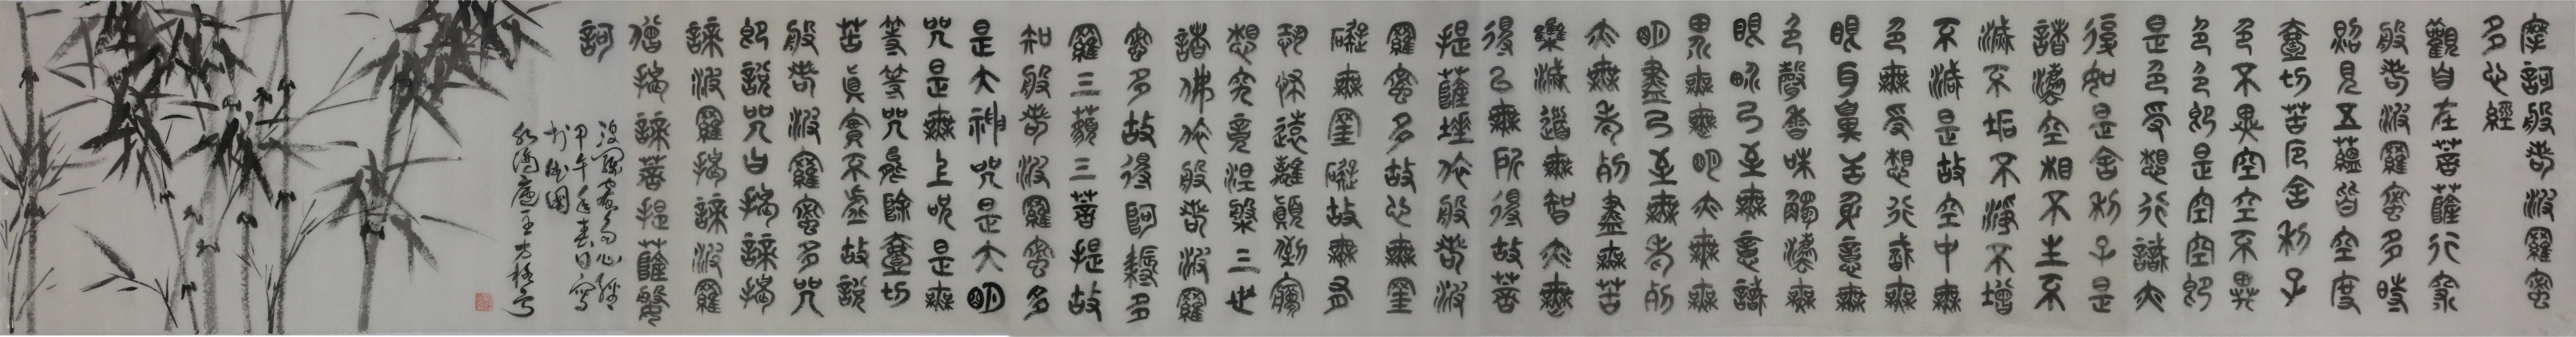 摩訶般若波羅蜜
多心經
觀自在菩薩行深
般若波羅蜜多時
照見五蘊皆空度
壹切苦厄舍利子
色不異空空不異
色色即是空空即
是色受想行識亦
復如是舍利子是
諸灋空相不生不
滅不垢不淨不增
不減是故空中無
色無受想行識無
眼耳鼻舌身意無
色聲香味觸灋無
眼界乃至無意識
界無無明亦無無
明盡乃至無老死
亦無老死盡無苦
集滅道無智亦無
得以無所得故菩
提薩埵依般若波
羅蜜多故心無罣
礙無罣礙故無有
恐怖遠離顛倒夢
想究竟涅槃三世
諸佛依般若波羅
蜜多故得阿耨多
羅三藐三菩提故
知般若波羅蜜多
是大神咒是大明
咒是無上咒是無
等等咒能除壹切
苦真實不虛故說
般若波羅蜜多咒
即說咒曰揭諦揭
諦波羅揭諦波羅
僧揭諦菩提薩婆
訶
波羅蜜多心經
甲午年春日寫